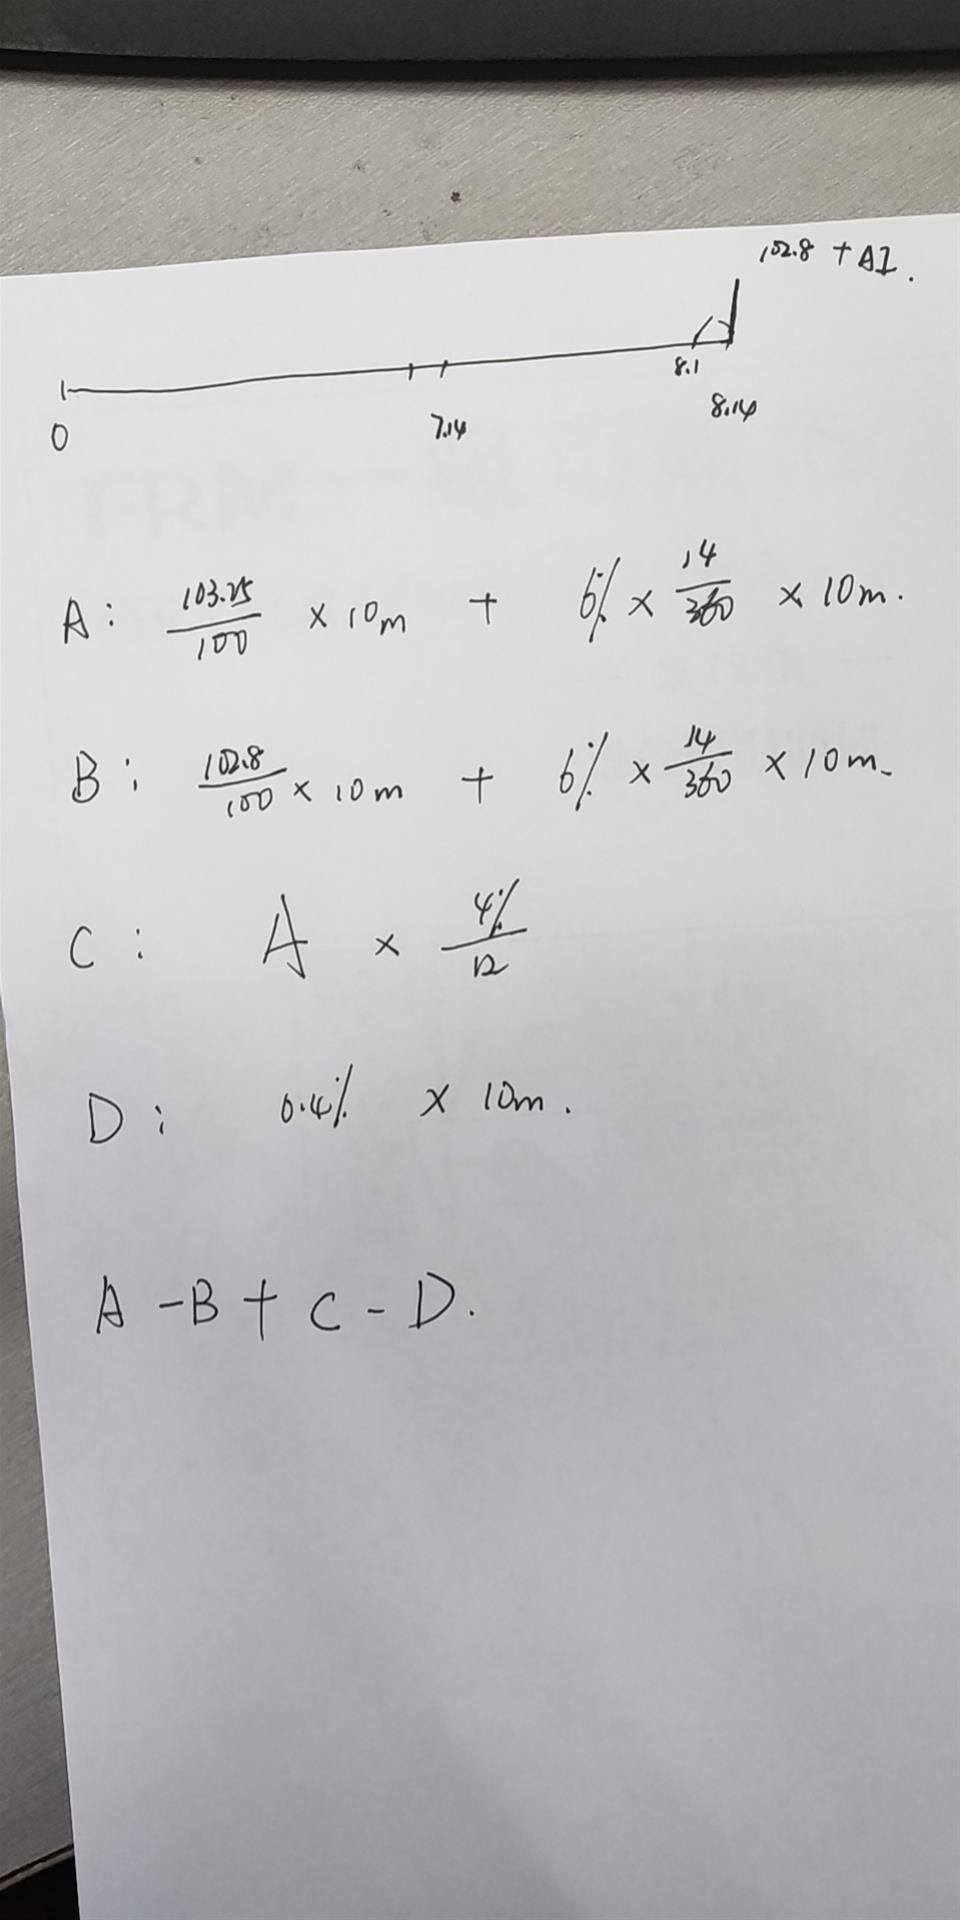 102.8 + AI.
8.1
8.14
7.14
0
A: 103.25/100 × 10m + 6% × 14/360 × 10m.
B: 102.8/100 × 10m + 6% × 14/360 × 10m.
C: A × 4%/12
D: 0.4% × 10m.
A - B + C - D.